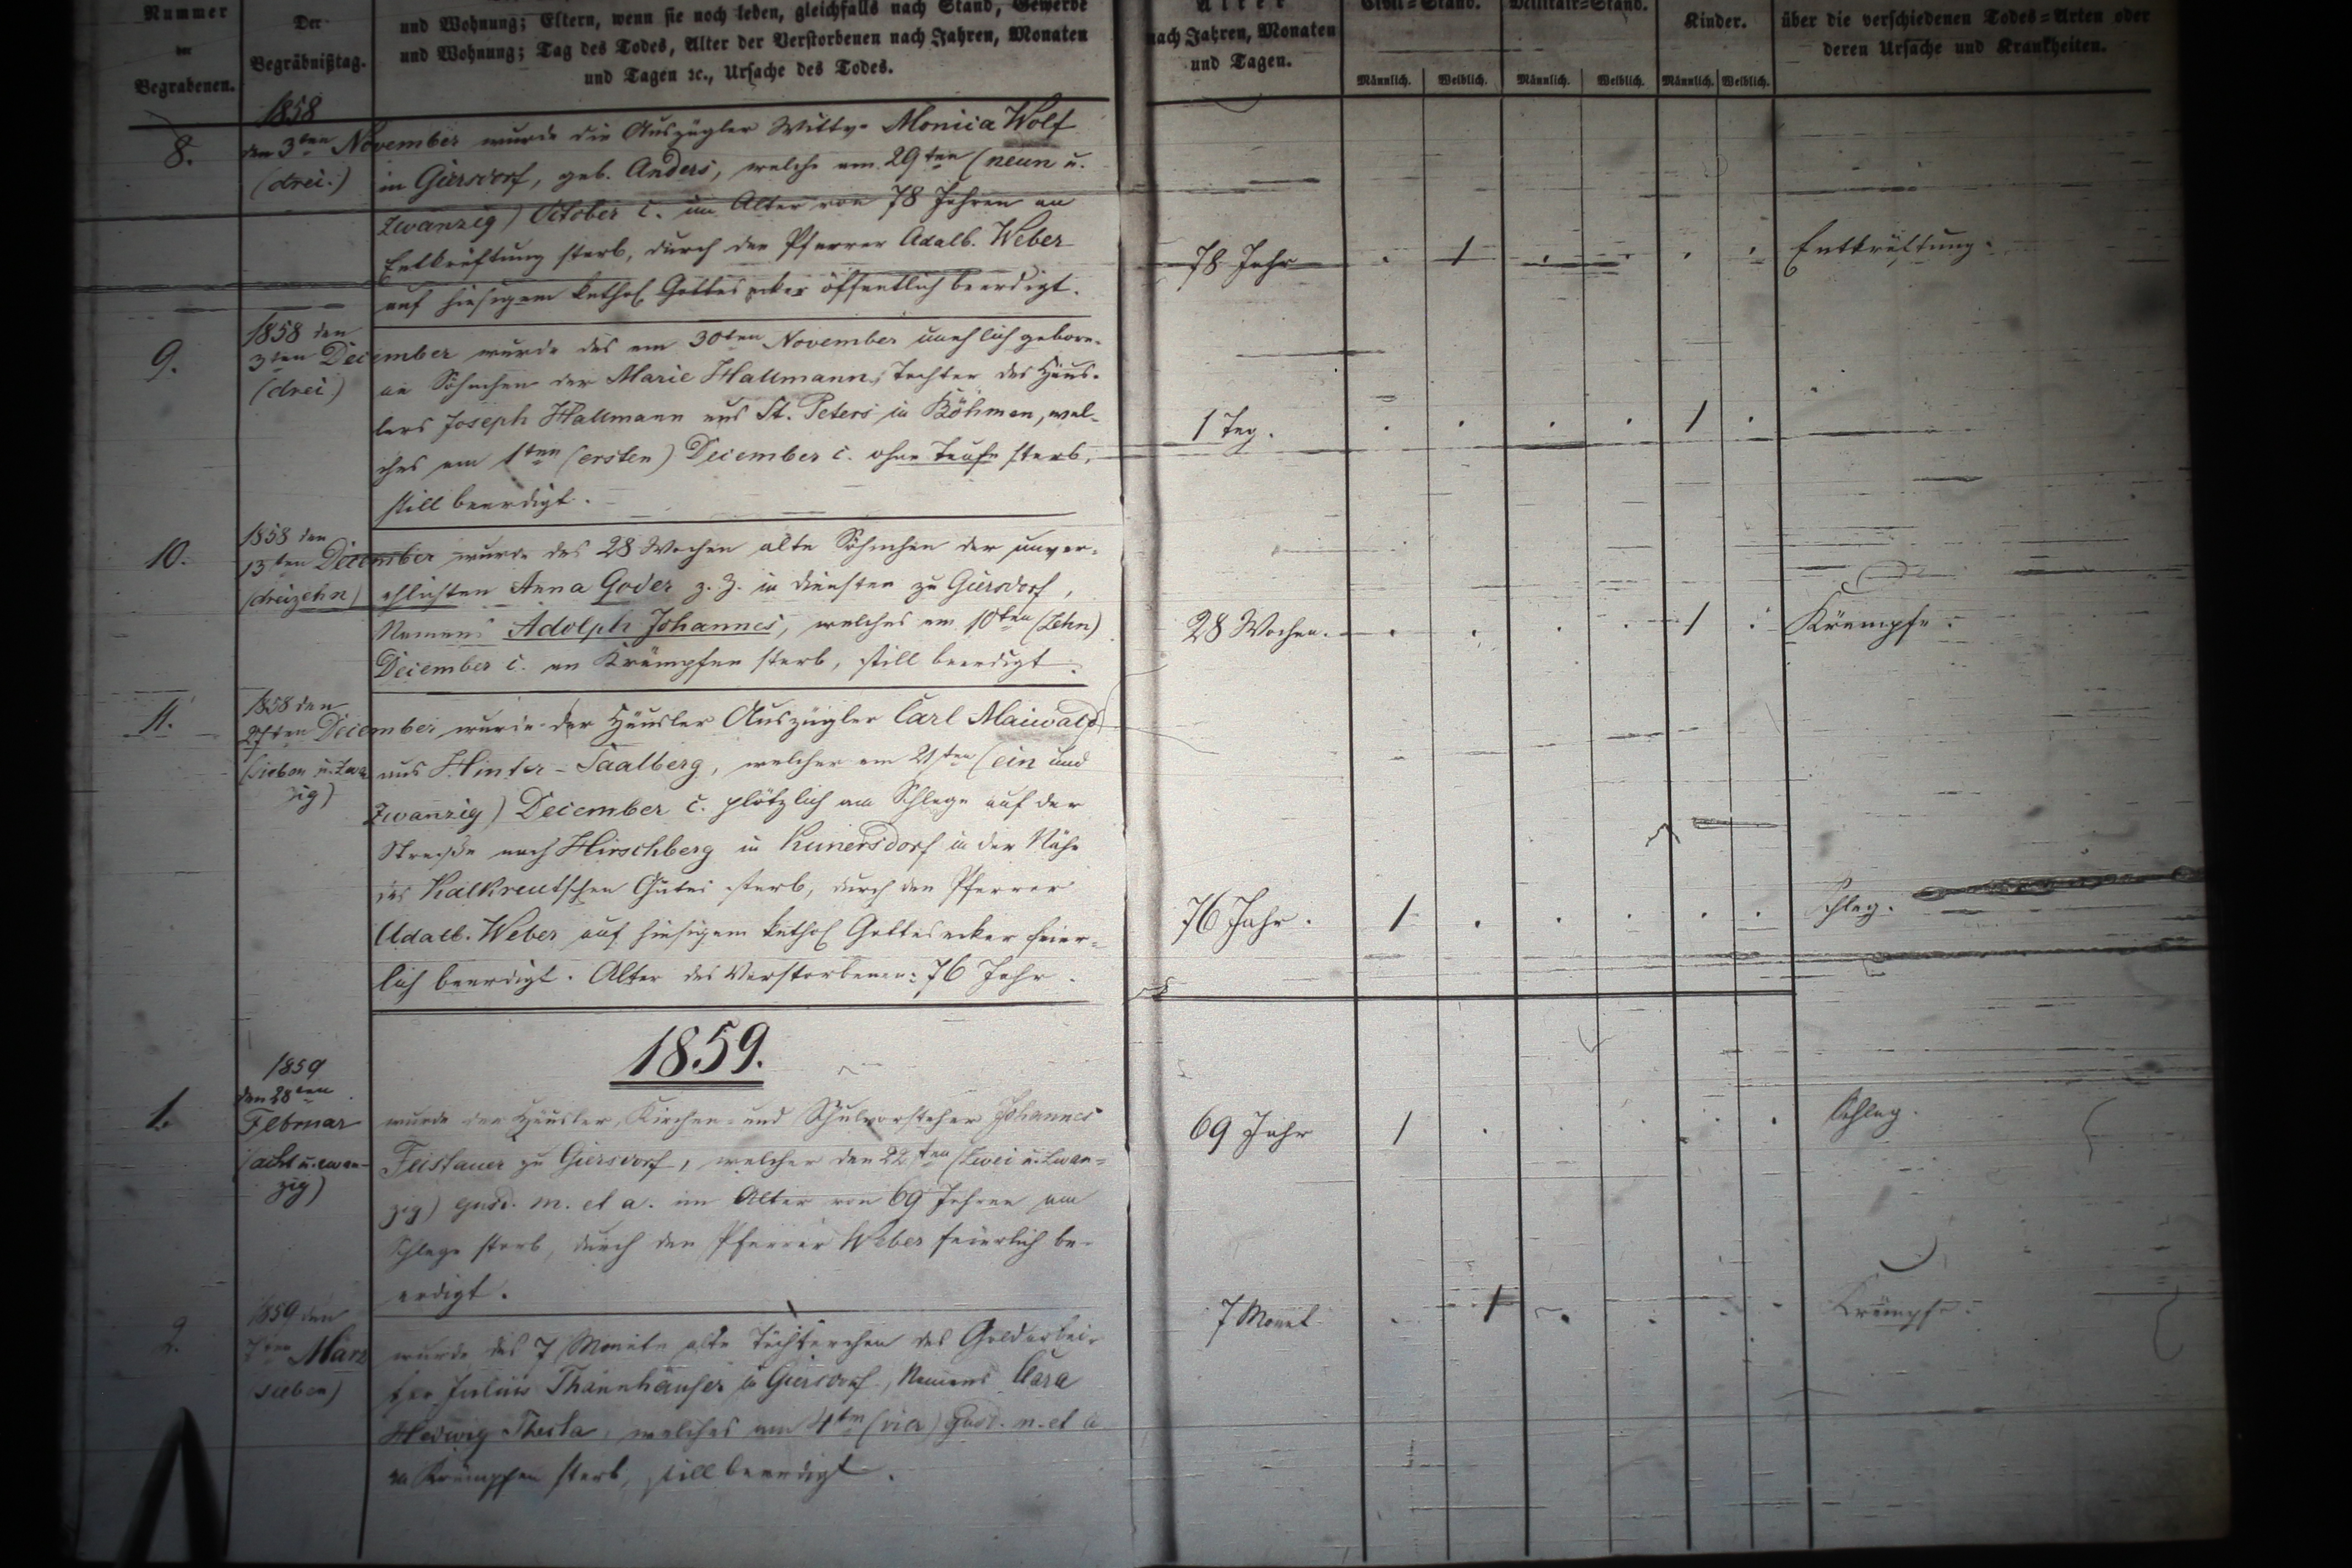 Nummer
der
Begrabenen.
Der
Begräbnißtag.
und Wohnung; Eltern, wenn sie noch leben, gleichfalls nach Stand, Gewerbe
und Wohnung; Tag des Todes, Alter der Verstorbenen nach Jahren, Monaten
und Tagen ꝛc., Ursache des Todes.
Alter
nach Jahren, Monaten
und Tagen.
Civil-Stand.
Militair-Stand.
Kinder.
Männlich. Weiblich. Männlich. Weiblich. Männlich. Weiblich.
über die verschiedenen Todes-Arten oder
deren Ursache und Krankheiten.
8.
1858
den 3ten November wurde die Auszügler Wittwe Monica Wolf
(drei.) in Giersdorf, geb. Anders, welche am 29ten (neun u.
zwanzig) October c. im Alter von 78 Jahren an
Entkräftung starb, durch den Pfarrer Adalb. Weber
auf hiesigem kathol. Gottesacker öffentlich beerdigt.
78 Jahr . 1 . . . . Entkräftung.
9.
1858 den
3ten December wurde das am 30ten November unehlich gebore-
(drei) ne Söhnchen der Marie Hallmann, Tochter des Häus-
lers Joseph Hallmann aus St. Peters in Böhmen, wel-
ches am 1ten (ersten) December c. ohne Taufe starb,
still beerdigt.
1 Tag. . . . . 1 .
10.
1858 den
13ten December wurde das 28 Wochen alte Söhnchen der unver-
(dreizehn) ehlichten Anna Goder z. Z. in Diensten zu Giersdorf,
Namens Adolph Johannes, welches am 10ten (Zehn)
December c. an Krämpfen starb, still beerdigt.
28 Wochen. . . . . 1 . Krämpfe.
11.
1858 den
27ten December wurde der Häusler Auszügler Carl Maiwald
(sieben u. zwan
zig)
aus Hinter-Saalberg, welcher am 21ten (ein und
zwanzig) December c. plötzlich am Schlage auf der
Straße nach Hirschberg in Kunersdorf in der Nähe
des Kalkreutschen Gutes starb, durch den Pfarrer
Adalb. Weber auf hiesigem kathol. Gottesacker feier-
lich beerdigt. Alter des Verstorbenen: 76 Jahr.
76 Jahr. 1 . . . . . Schlag.
1859.
1.
1859
den 28ten
Februar
(acht u. zwan-
zig)
wurde der Häusler, Kirchen- und Schulvorsteher Johannes
Feistauer zu Giersdorf, welcher den 22ten (Zwei u. Zwan-
zig) ejusd. m. et a. im Alter von 69 Jahren am
Schlage starb, durch den Pfarrer Weber feierlich be-
erdigt.
69 Jahr 1 . . . . . Schlag.
2.
1859 den
7ten März
(sieben)
wurde das 7 Monate alte Töchterchen des Goldarbei-
ter Julius Thannhäuser in Giersdorf, Namens Clara
Hedwig Thekla, welches am 4ten (vier) ejusd. m. et a
an Krämpfen starb, still beerdigt.
7 Monat . 1 . . . . Krämpfe.